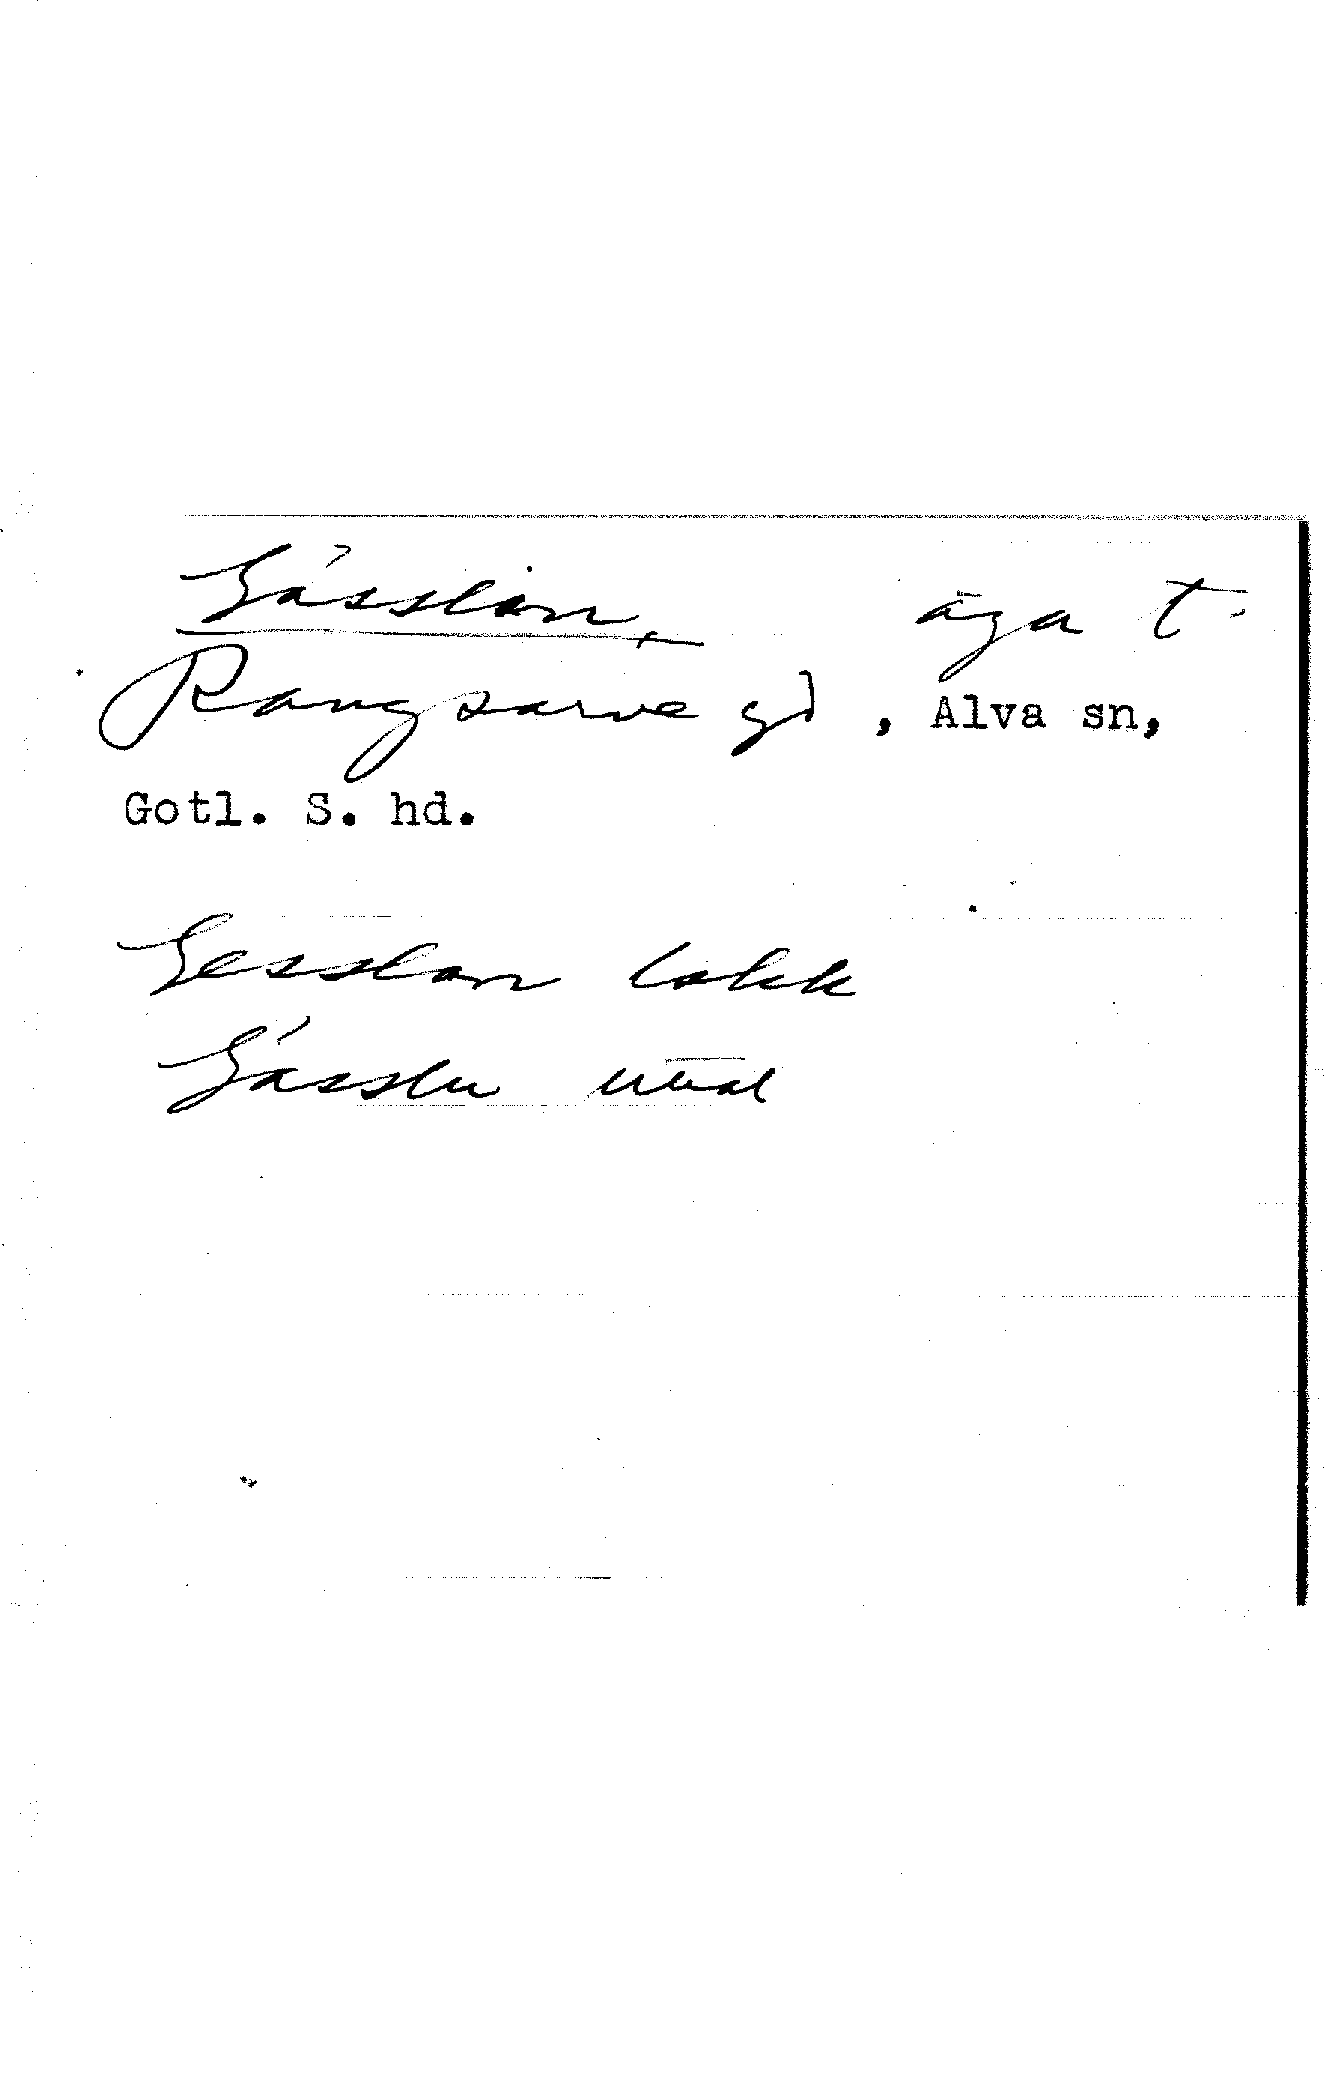 Gásslan, äga t.
Rangsarve gd, Alva sn,
Gotl. S. hd.
Gesslan lokk
Gásslu